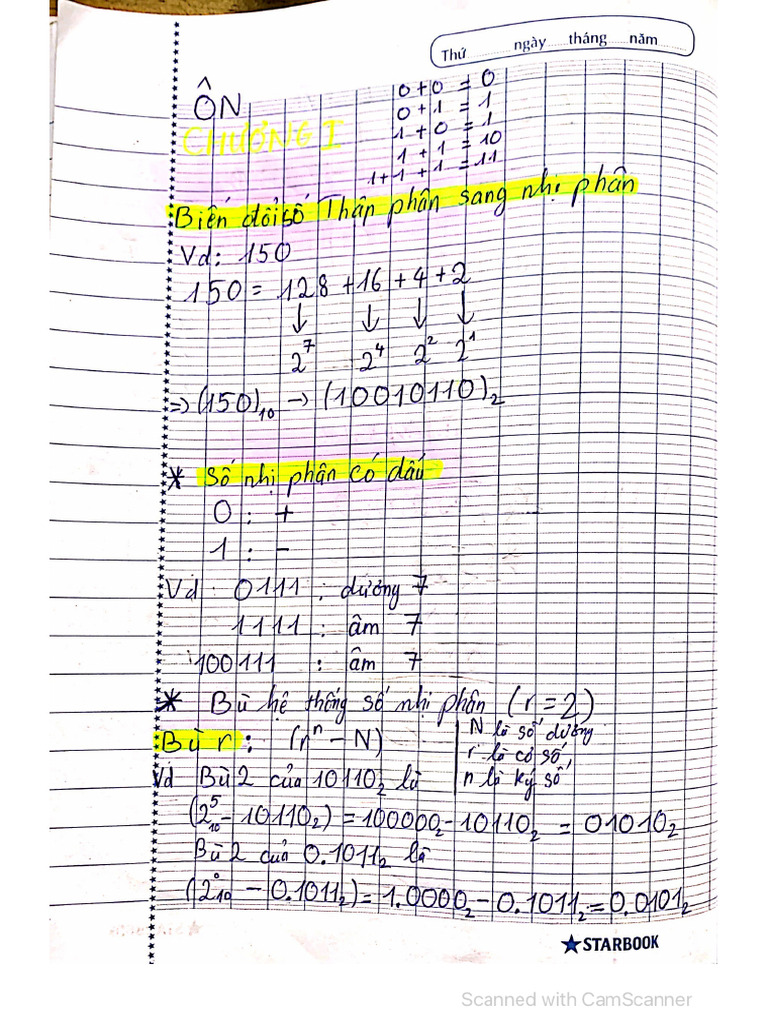 Thứ ngày tháng năm
ÔN
CHƯƠNG I
0 + 0 = 0
0 + 1 = 1
1 + 0 = 1
1 + 1 = 10
1 + 1 + 1 = 11
Biến đổi số Thập phân sang nhị phân
Vd: 150
150 = 128 + 16 + 4 + 2
↓ ↓ ↓ ↓
2⁷ 2⁴ 2² 2¹
=> (150)₁₀ → (10010110)₂
* Số nhị phân có dấu
0 : +
1 : -
Vd 0111 : dương 7
1111 : âm 7
100111 : âm 7
* Bù hệ thống số nhị phân (r = 2)
Bù r : (rⁿ - N)
N là số dương
r là cơ số,
n là ký số
Vd Bù 2 của 10110₂ là
(2⁵₁₀ - 10110₂) = 100000₂ - 10110₂ = 01010₂
Bù 2 của 0.1011₂ là
(2⁰₁₀ - 0.1011₂) = 1.0000₂ - 0.1011₂ = 0.0101₂
STARBOOK
Scanned with CamScanner